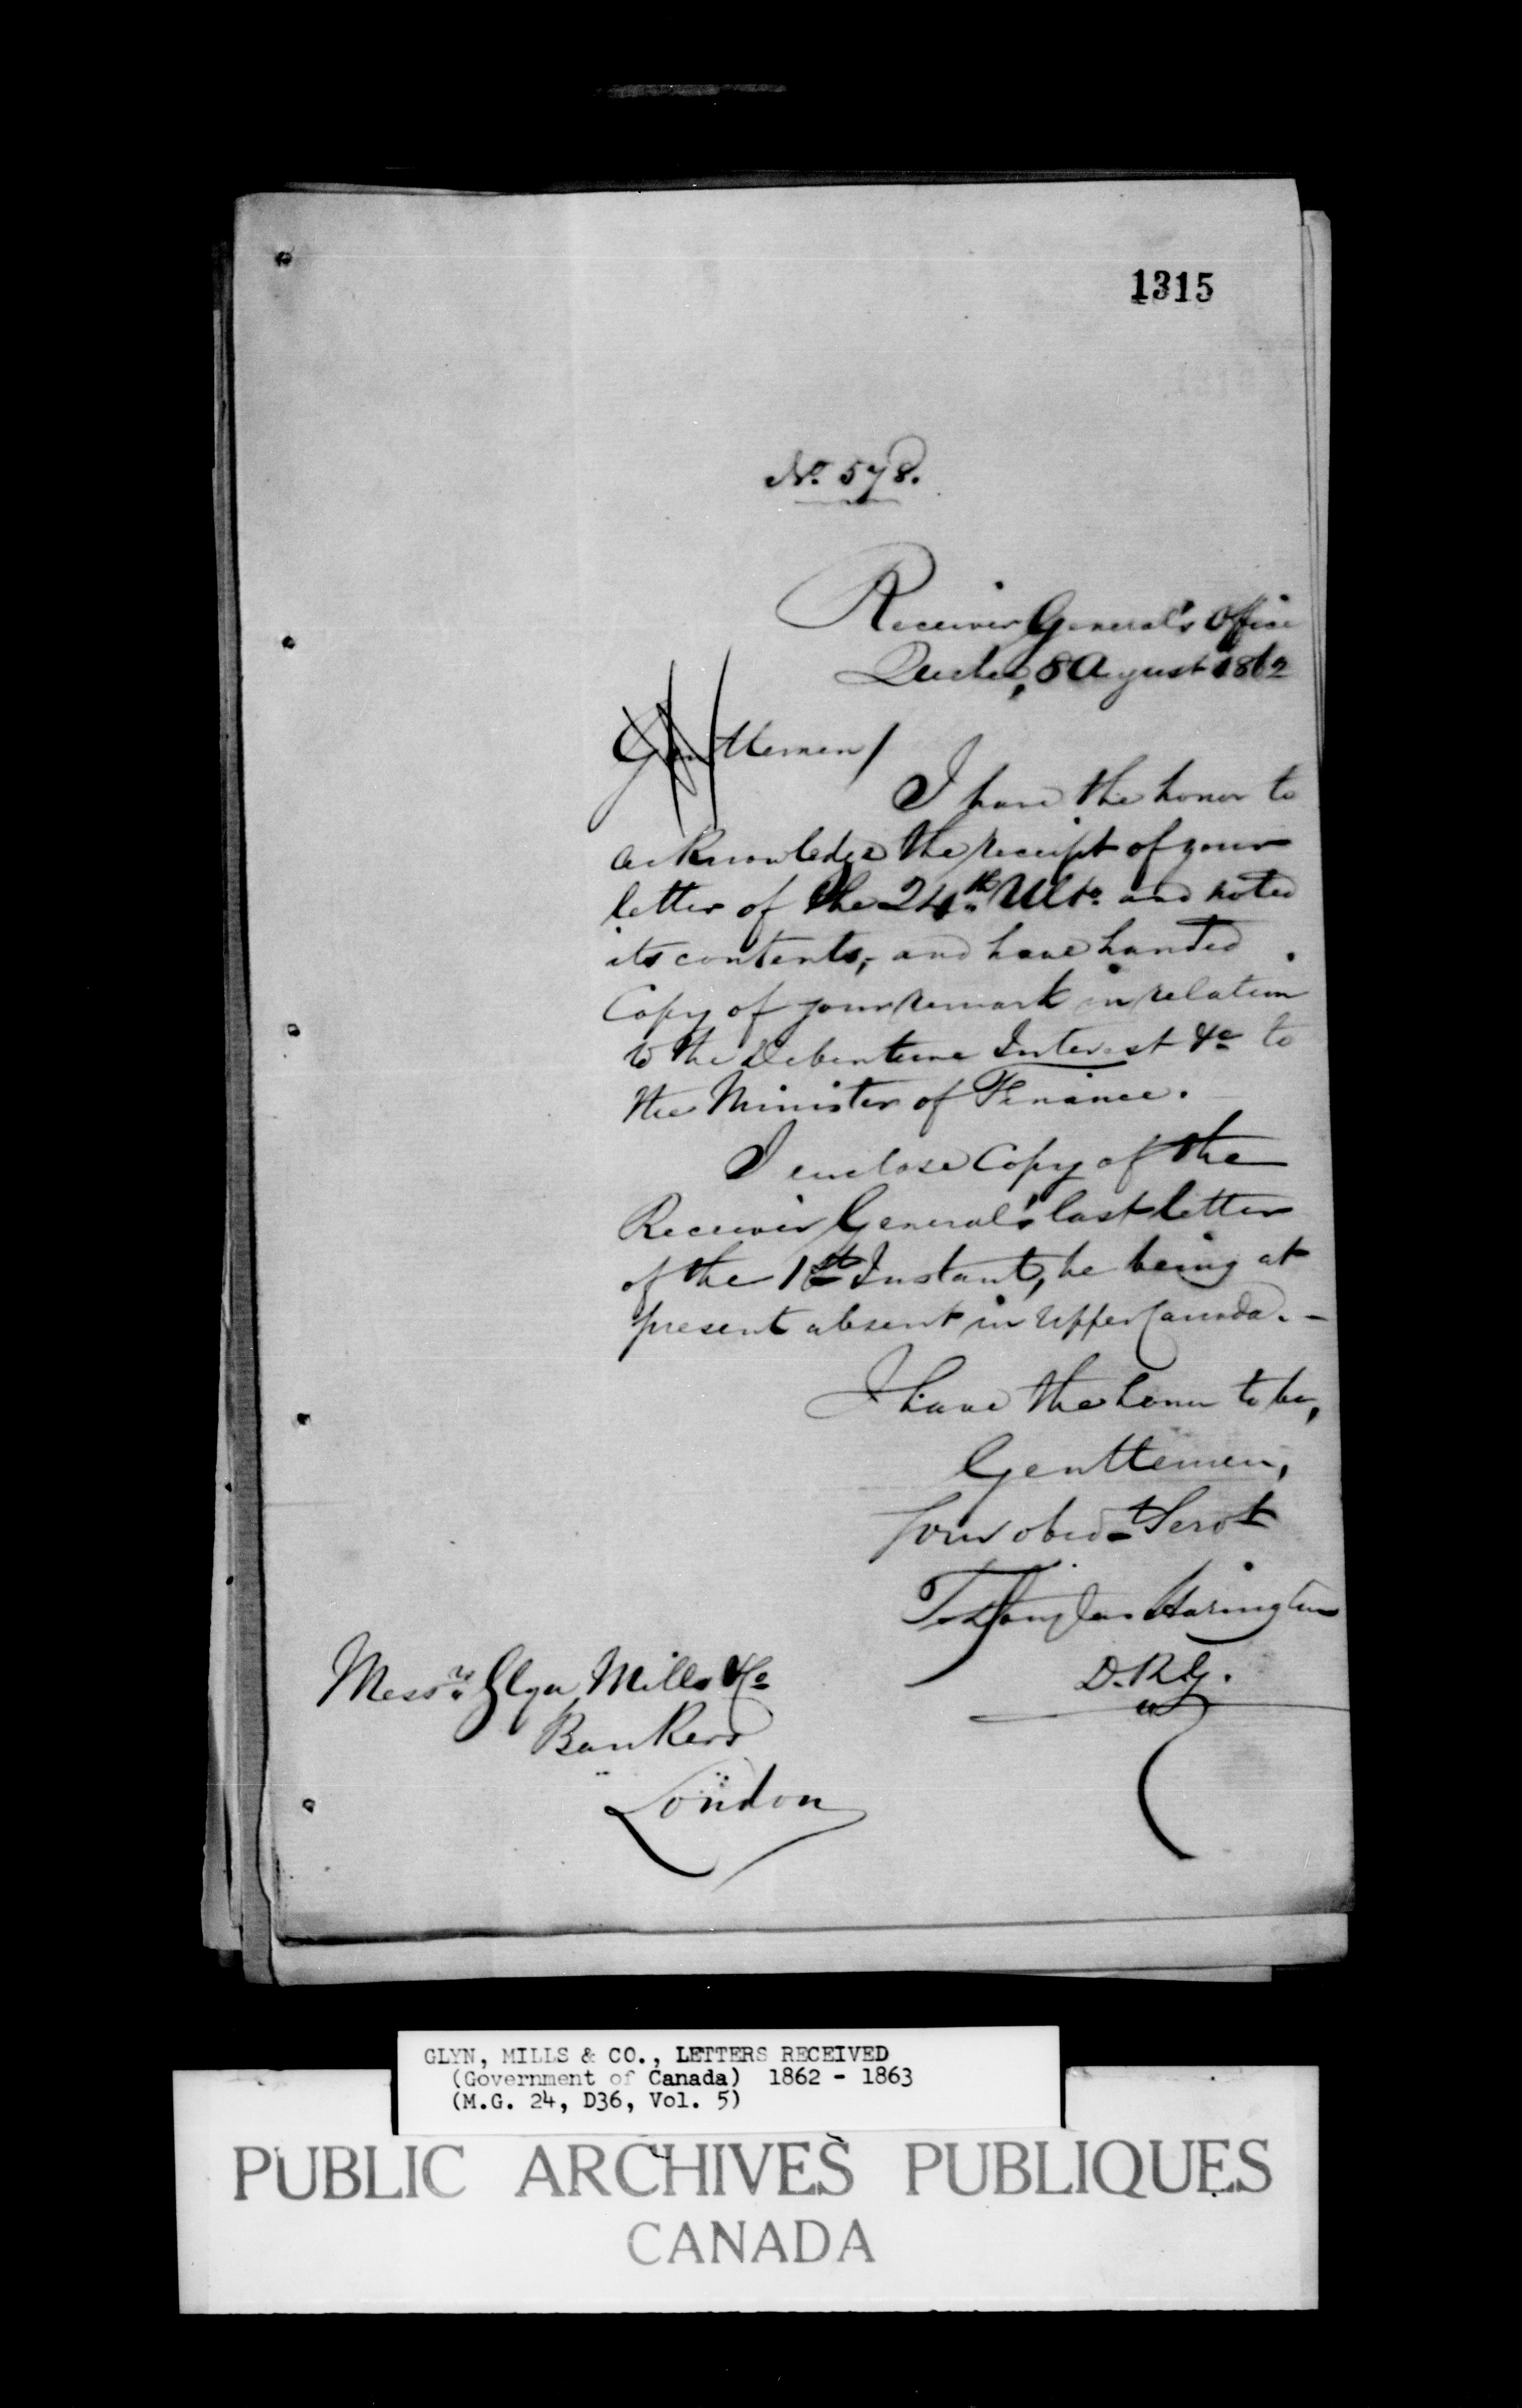 1315
No. 578.
Receiver General's Office
Quebec, 8 August 1862
Gentlemen/
I have the honor to
acknowledge the receipt of your
letter of the 24th Ulto. and noted
its contents, and have handed
Copy of your remark in relation
to the Debenture Interest &c to
the Minister of Finance.
I enclose Copy of the
Receiver General's last letter
of the 1st Instant, he being at
present absent in Upper Canada. -
I have the honor to be,
Gentlemen,
Your obedt Servt
T Douglas Harington
D.R.G.
Messrs. Glyn Mills &Co
Bankers
London
GLYN, MILLS & CO., LETTERS RECEIVED
(Government of Canada) 1862 - 1863
(M.G. 24, D36, Vol. 5)
PUBLIC ARCHIVES PUBLIQUES
CANADA